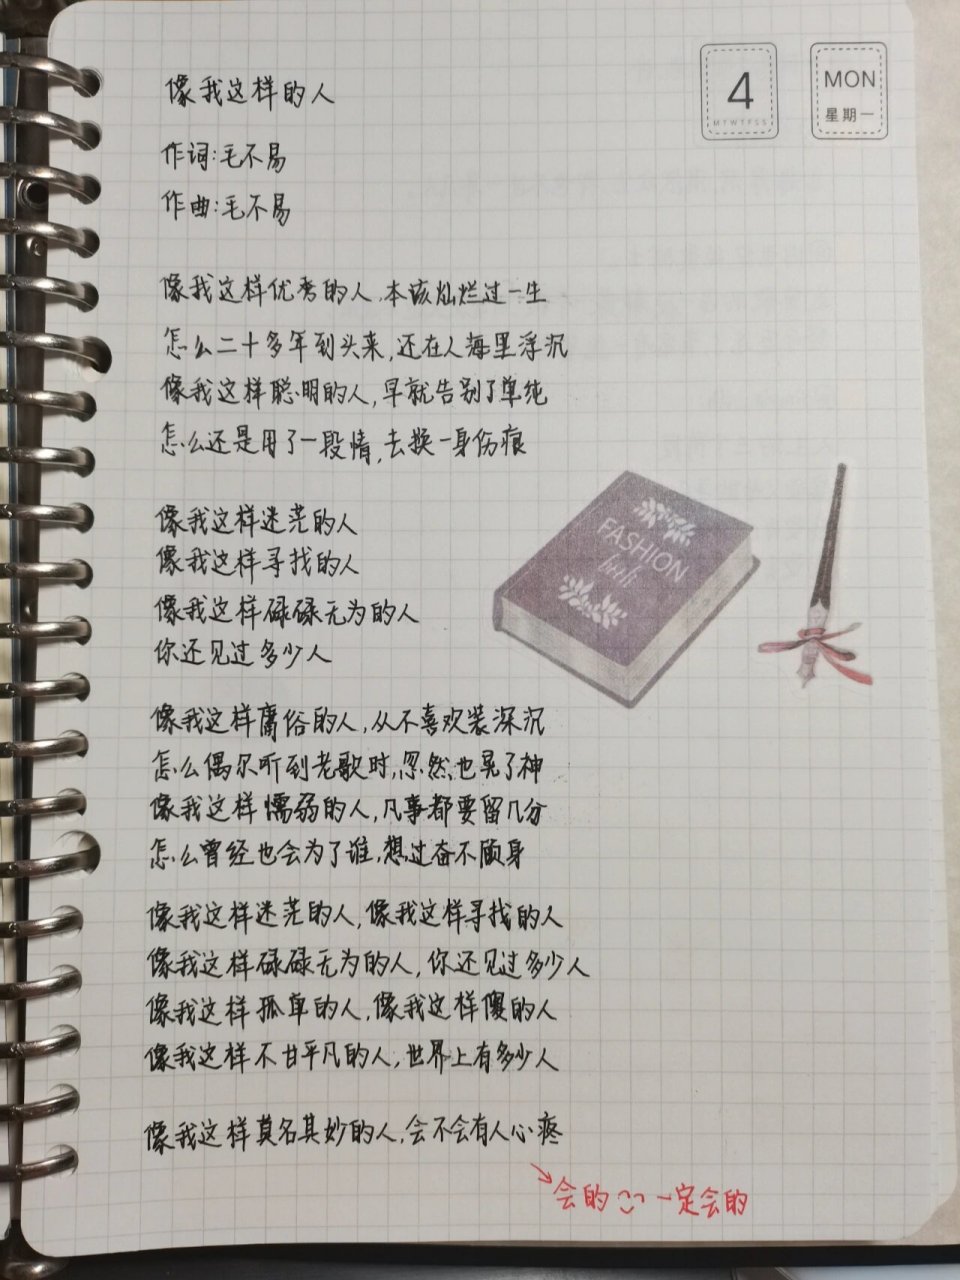 4
MON
MTWTFSS
星期一
像我这样的人
作词:毛不易
作曲:毛不易
像我这样优秀的人,本该灿烂过一生
怎么二十多年到头来,还在人海里浮沉
像我这样聪明的人,早就告别了单纯
怎么还是用了一段情,去换一身伤痕
像我这样迷茫的人
像我这样寻找的人
像我这样碌碌无为的人
你还见过多少人
FASHION
像我这样庸俗的人,从不喜欢装深沉
怎么偶尔听到老歌时,忽然也晃了神
像我这样懦弱的人,凡事都要留几分
怎么曾经也会为了谁,想过奋不顾身
像我这样迷茫的人,像我这样寻找的人
像我这样碌碌无为的人,你还见过多少人
像我这样孤单的人,像我这样傻的人
像我这样不甘平凡的人,世界上有多少人
像我这样莫名其妙的人,会不会有人心疼
会的 一定会的